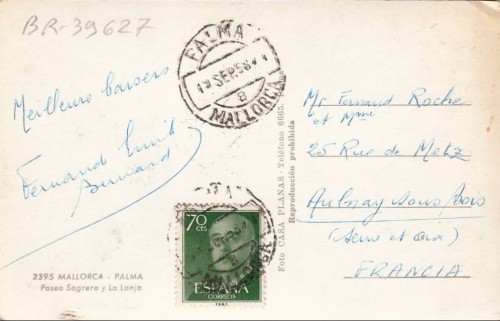 BR-39627
PALMA
19 SEP 58
8
MALLORCA
Meilleurs baisers
Fernand
Bernard
Mr Fernand Roche
et Mme
25 Rue de Metz
Aulnay sous Bois
(Seine et Oise)
FRANCIA
Foto CASA PLANAS - Teléfono 6665.
Reproducción prohibida
70
CTS
ESPAÑA
CORREOS
MALLORCA
2395 MALLORCA - PALMA
Paseo Sagrera y La Lonja